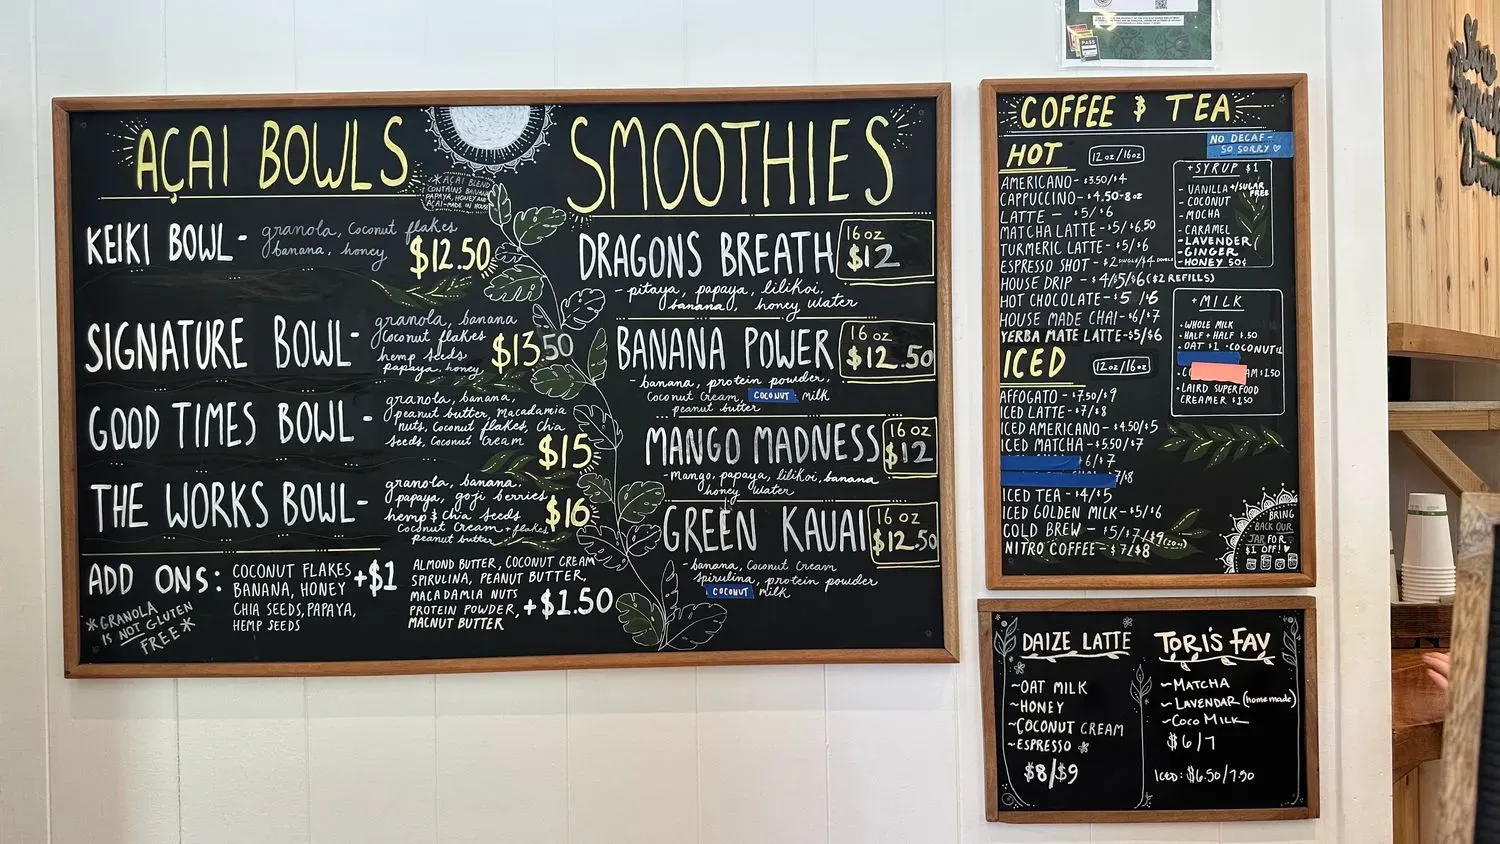 AÇAI BOWLS
*AÇAI BLEND
CONTAINS BANANA
PAPAYA, HONEY AND
AÇAI-MADE IN HOUSE
KEIKI BOWL- granola, coconut flakes
banana, honey
$12.50
SIGNATURE BOWL- granola, banana
Coconut flakes
hemp seeds
papaya, honey
$13.50
GOOD TIMES BOWL- granola, banana,
peanut butter, Macadamia
nuts, Coconut flakes, Chia
seeds, Coconut Cream
$15
THE WORKS BOWL- granola, banana,
papaya, goji berries,
hemp & Chia Seeds
Coconut Cream + flakes
peanut butter
$16
ADD ONS: COCONUT FLAKES
BANANA, HONEY
CHIA SEEDS, PAPAYA,
HEMP SEEDS
+$1
ALMOND BUTTER, COCONUT CREAM
SPIRULINA, PEANUT BUTTER,
MACADAMIA NUTS
PROTEIN POWDER,
MACNUT BUTTER
+$1.50
*GRANOLA
IS NOT GLUTEN
FREE*
SMOOTHIES
DRAGONS BREATH 16 oz
$12
- pitaya, papaya, lilikoi,
banana, honey water
BANANA POWER 16 oz
$12.50
- banana, protein powder,
Coconut Cream, COCONUT milk
peanut butter
MANGO MADNESS 16 oz
$12
- Mango, papaya, lilikoi, banana
honey water
GREEN KAUAI 16 oz
$12.50
- banana, Coconut Cream
spirulina, protein powder
COCONUT milk
COFFEE & TEA
NO DECAF-
SO SORRY ♡
HOT 12oz/16oz
AMERICANO- $3.50/$4
CAPPUCCINO- $4.50-8oz
LATTE - $5/$6
MATCHA LATTE -$5/$6.50
TURMERIC LATTE -$5/$6
ESPRESSO SHOT -$2 SINGLE/$4 DOUBLE
HOUSE DRIP - $4/$5/$6($2 REFILLS)
HOT CHOCOLATE-$5/$6
HOUSE MADE CHAI-$6/$7
YERBA MATE LATTE-$5/$6
+SYRUP $1
- VANILLA +/SUGAR FREE
- COCONUT
- MOCHA
- CARAMEL
- LAVENDER
- GINGER
- HONEY 50¢
+MILK
• WHOLE MILK
• HALF + HALF $.50
• OAT $1 • COCONUT $1
AM $1.50
• LAIRD SUPERFOOD
CREAMER $1.50
ICED 12oz/16oz
AFFOGATO -$7.50/$9
ICED LATTE -$7/$8
ICED AMERICANO -$4.50/$5
ICED MATCHA -$5.50/$7
6/$7
7/$8
ICED TEA -$4/$5
ICED GOLDEN MILK-$5/$6
COLD BREW -$5/$7/$9
NITRO COFFEE -$7/$8
BRING
BACK OUR
JAR FOR
$1 OFF!
DAIZE LATTE
~OAT MILK
~HONEY
~COCONUT CREAM
~ESPRESSO
$8/$9
TORI'S FAV
~MATCHA
~LAVENDAR (homemade)
~COCO MILK
$6/7
ICED: $6.50/7.50
PASS